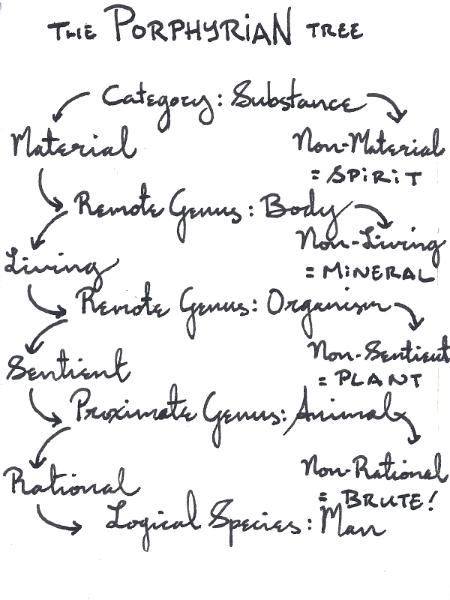 THE PORPHYRIAN TREE
Category: Substance
Material
Non-Material
= SPIRIT
Remote Genus: Body
Non-Living
= MINERAL
Living
Remote Genus: Organism
Non-Sentient
= PLANT
Sentient
Proximate Genus: Animal
Non-Rational
= BRUTE!
Rational
Logical Species: Man